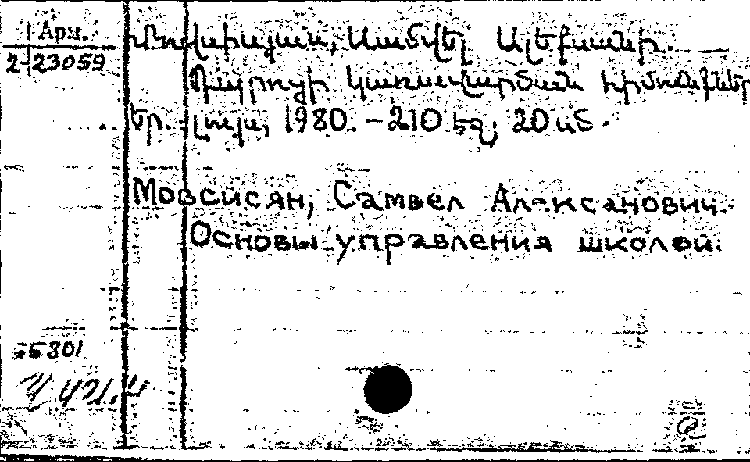 Арм.
2-23059
Մովսիսյան, Սամվել Ալեքսանի.
Դպրոցի կառավարման հիմունքներ
Եր. Լույս, 1980. - 210 էջ, 20 սմ.
Мовсисян, Самвел Александрович.
Основы управления школой.
5301